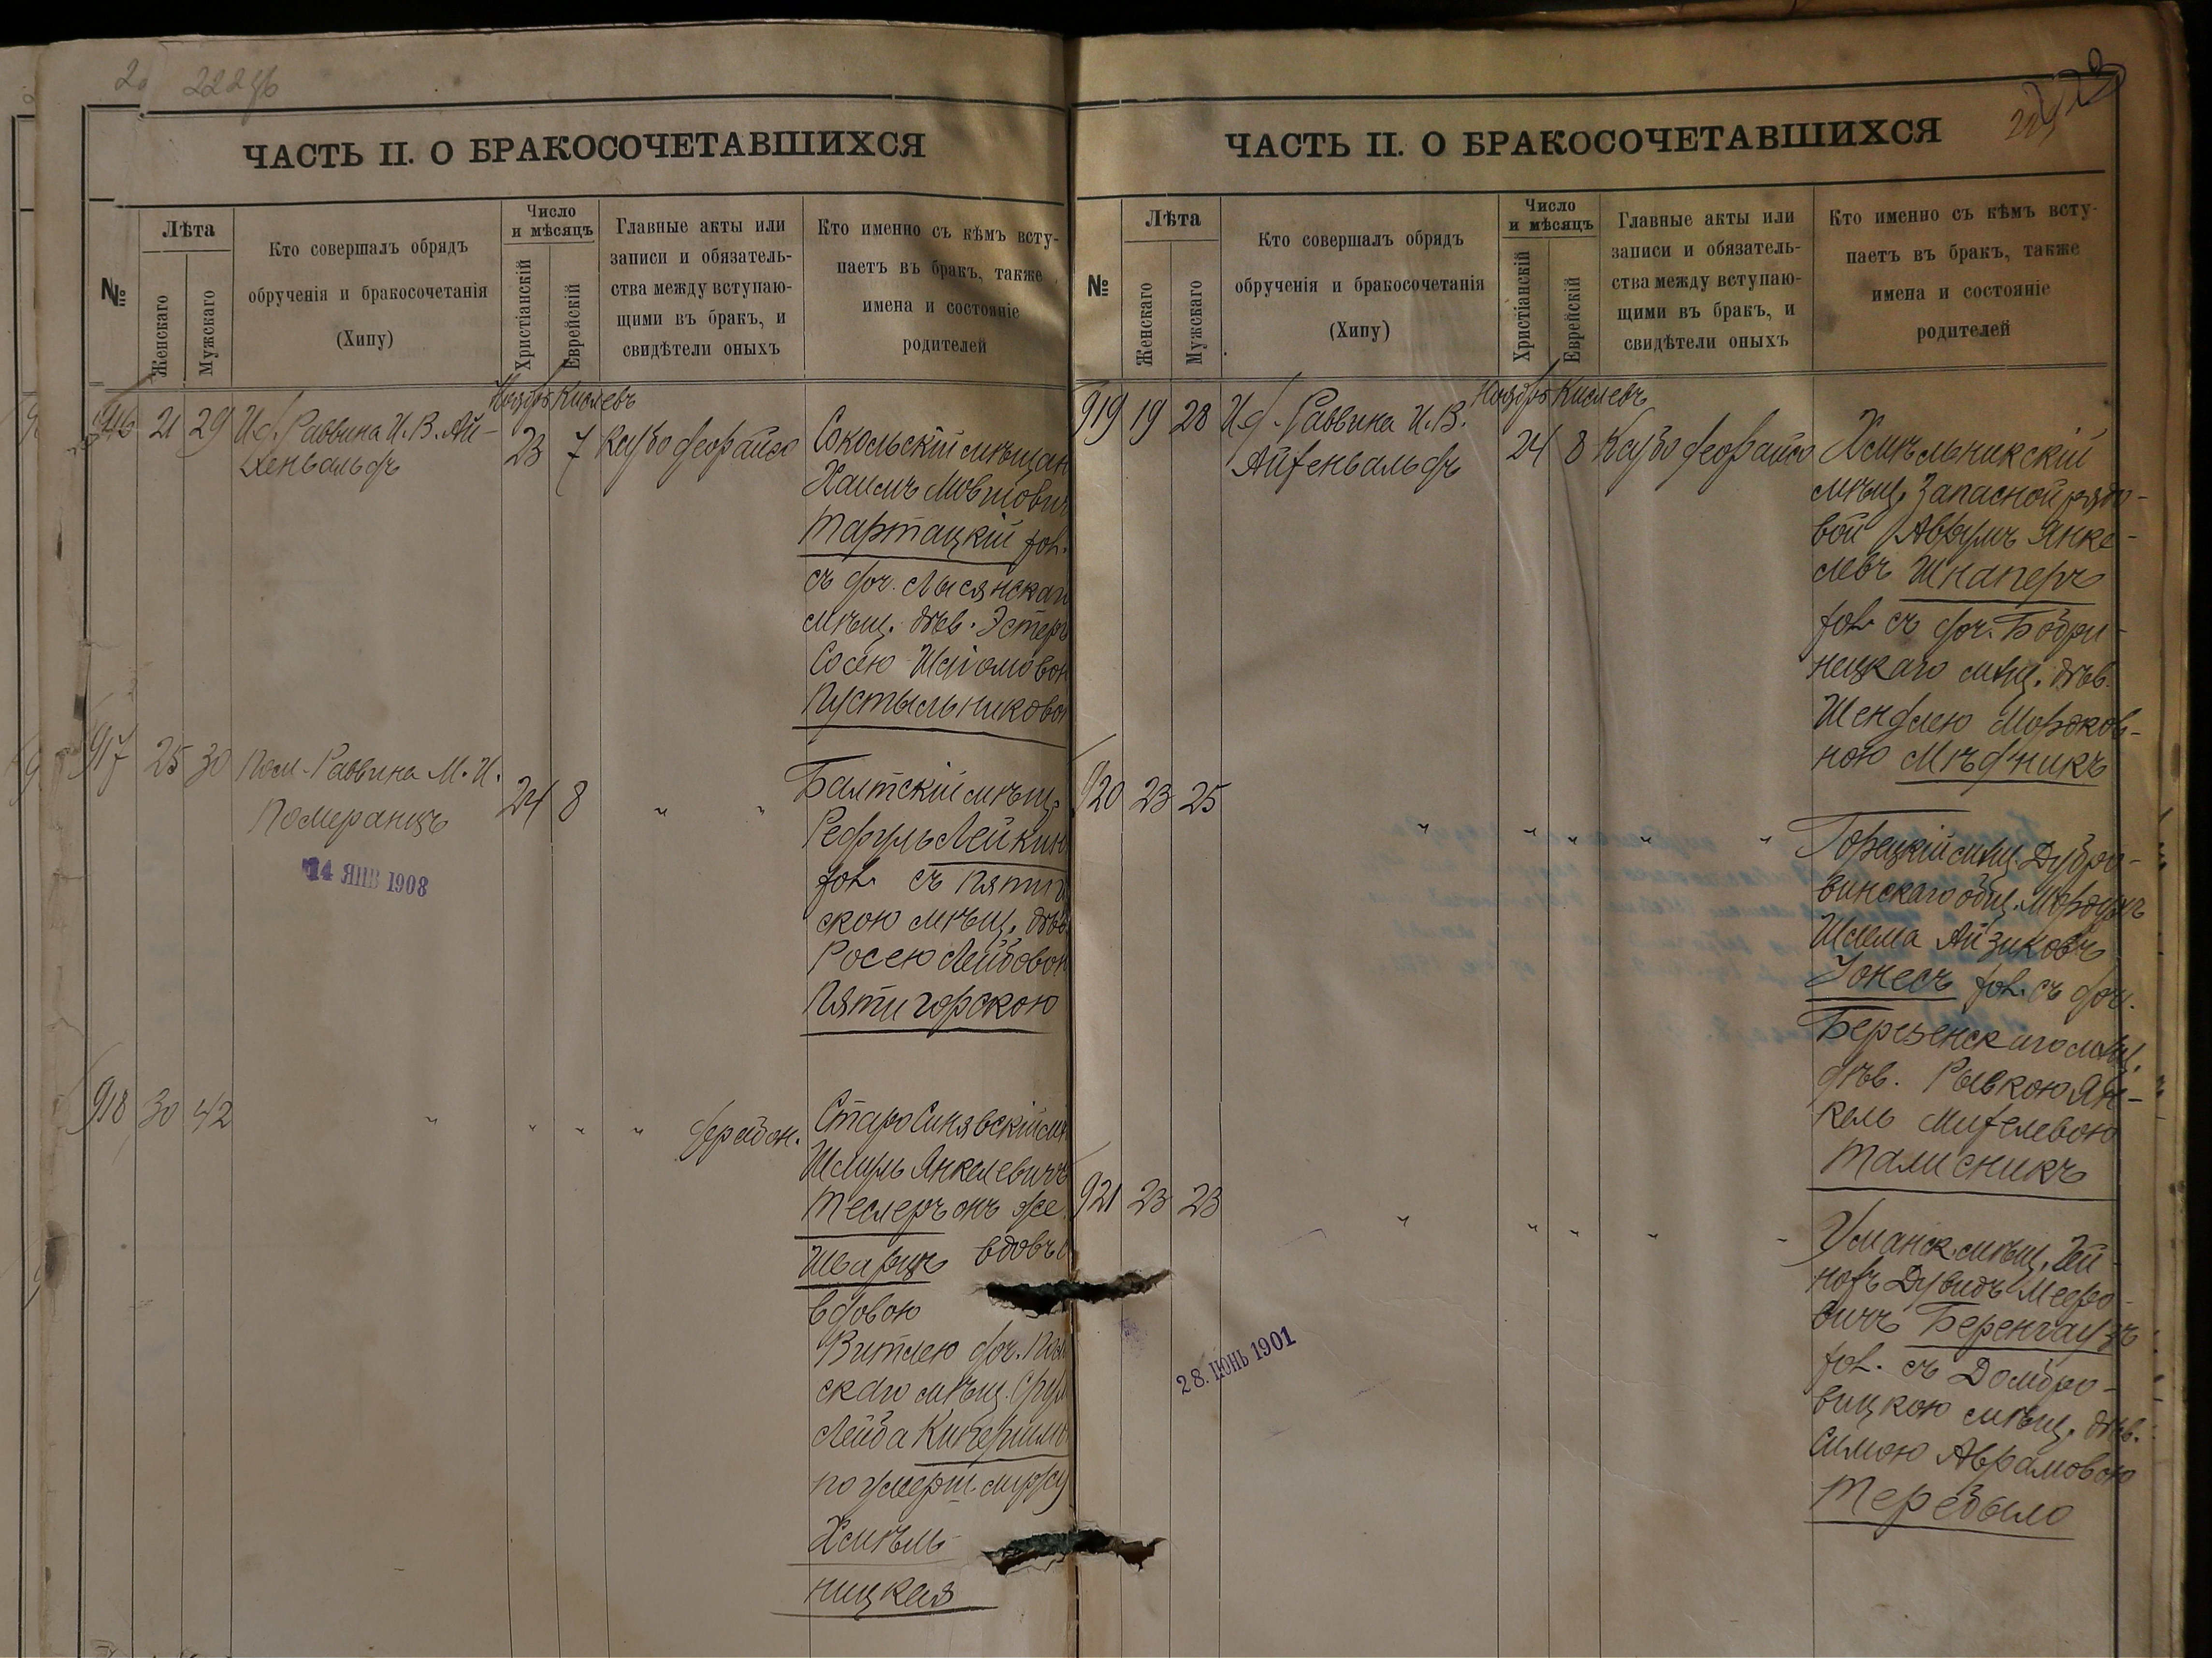 222об
ЧАСТЬ II. О БРАКОСОЧЕТАВШИХСЯ
№
Лѣта
Женскаго
Мужскаго
Кто совершалъ обрядъ
обрученія и бракосочетанія
(Хипу)
Число
и мѣсяцъ
Христіанскій
Еврейскій
Главные акты или
записи и обязатель-
ства между вступаю-
щими въ бракъ, и
свидѣтели оныхъ
Кто именно съ кѣмъ всту-
паетъ въ бракъ, также
имена и состояніе
родителей
Ноябрь Кислевъ
916 21 29 И.д. Раввина И.В. Ай-
зенвальдъ
23 7
Сокольскій мѣщан
Хаимъ Мовшович
Тартацкій хол.
съ доч. Лысянскаго
мѣщ. дѣв. Эстеръ
Сосею Шліомовой
Пустыльниковой
917 25 30 Пом. Раввина М. И.
Померанцъ
24 8 " "
14 ЯНВ 1908
Балтскій мѣщ.
Рефуль Лейкин
хол. съ Пятиг
скою мѣщ. дѣв.
Росею Лейбовой
Пятигорскою
918 30 42 " " " "
СтароСинявскій мѣ
Шмуль Янкелевичъ
Теслеръ онъ же
Шварцъ вдовъ
вдовою
Витлею доч.
скаго мѣщ. Срул
Лейба
по умерш. мужу
Хмѣль-
ницкая
ЧАСТЬ II. О БРАКОСОЧЕТАВШИХСЯ
№
Лѣта
Женскаго
Мужскаго
Кто совершалъ обрядъ
обрученія и бракосочетанія
(Хипу)
Число
и мѣсяцъ
Христіанскій
Еврейскій
Главные акты или
записи и обязатель-
ства между вступаю-
щими въ бракъ, и
свидѣтели оныхъ
Кто именно съ кѣмъ всту-
паетъ въ бракъ, также
имена и состояніе
родителей
Ноябрь Кислевъ
919 19 28 И.д. Раввина И.В.
Айзенвальдъ
24 8
Хмѣльникскій
мѣщ. Запасной рядо-
вой Аврумъ Янке-
левъ Шнаперъ
хол. съ доч. Бобри-
нецкаго мѣщ. дѣв.
Шендлею Мордков-
ною Мѣдникъ
920 23 25 " " " " "
Горецкій мѣщ. Дубро-
винскаго общ. Мордухъ
Шлема Айзиковъ
Іонесъ хол. съ доч.
Березенскаго мѣщ.
дѣв. Рывкою Ян-
кель Мителевою
Талисникъ
921 23 23 " " " " "
28. ІЮНЬ 1901
Уманск. мѣщ. Зей-
Дувидъ Мееро-
вичъ Беренгаузъ
хол. съ Домбро-
вицкою мѣщ. дѣв.
Симою Абрамовою
Теребыло